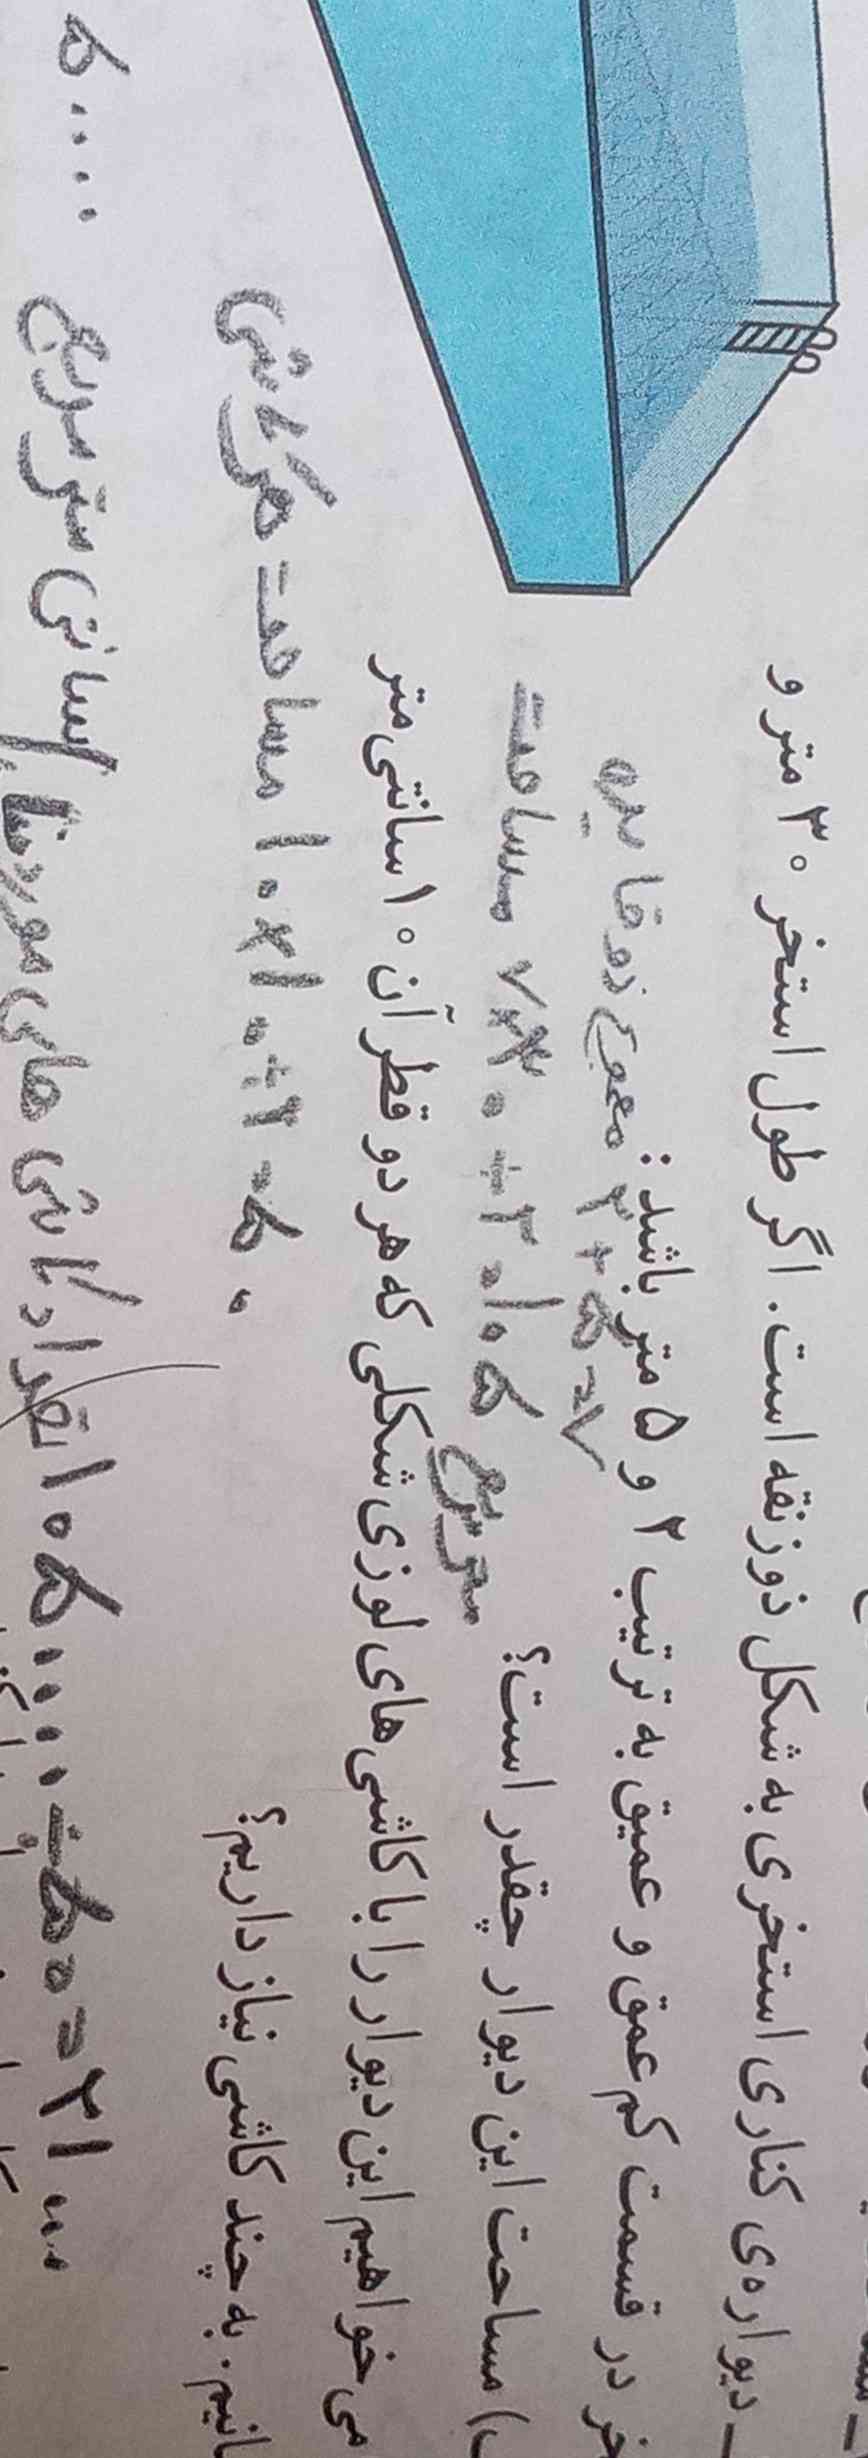 ـ دیواره‌ی کناری استخری به شکل ذوزنقه است. اگر طول استخر ۳۰ متر و
خر در قسمت کم عمق و عمیق به ترتیب ۲ و ۵ متر باشد:
مجموع دو قاعده ۲+۵=۷
) مساحت این دیوار چقدر است؟
مساحت = ۷×۳۰÷۲=۱۰۵ متر مربع
می‌خواهیم این دیوار را با کاشی‌های لوزی شکلی که هر دو قطر آن ۱۰ سانتی‌متر
انیم. به چند کاشی نیاز داریم؟
مساحت هر کاشی = ۱۰×۱۰÷۲=۵۰
سانتی متر مربع
۱۰۵۰۰۰۰÷۵۰=۲۱۰۰۰
تعداد کاشی های مورد